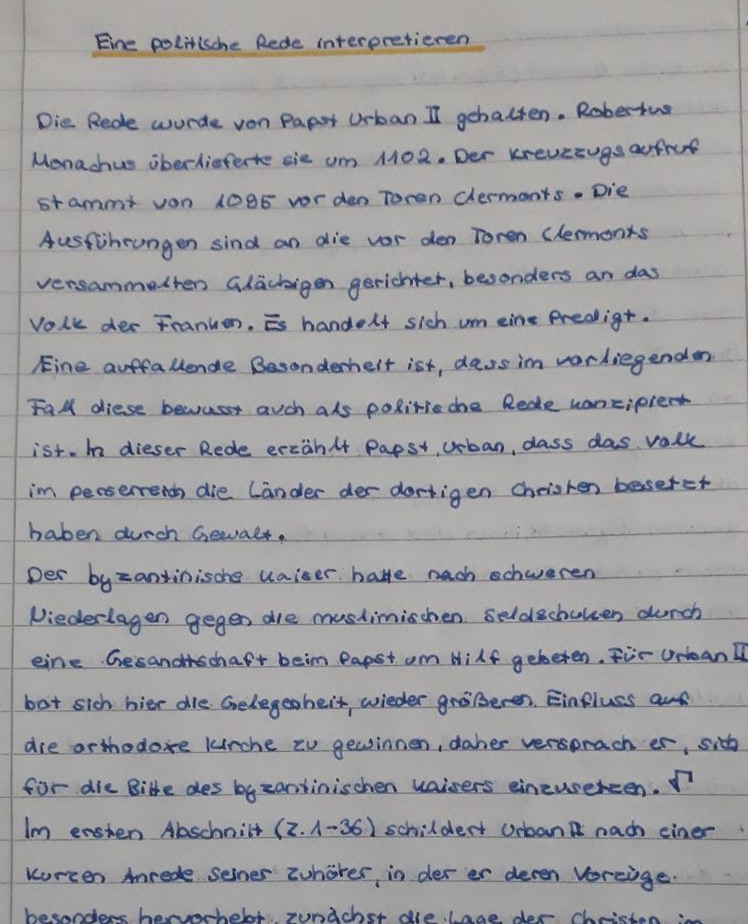 Eine politische Rede interpretieren
Die Rede wurde von Papst Urban II gehalten. Robertus
Monachus überlieferte sie um 1102. Der Kreuzzugsaufruf
stammt von 1095 vor den Toren Clermonts. Die
Ausführungen sind an die vor den Toren Clermonts
versammelten Gläubigen gerichtet, besonders an das
Volk der Franken. Es handelt sich um eine Predigt.
Eine auffallende Besonderheit ist, dass im vorliegenden
Fall diese bewusst auch als politische Rede konzipiert
ist. In dieser Rede erzählt Papst Urban, dass das Volk
im Perserreich die Länder der dortigen Christen besetzt
haben durch Gewalt.
Der byzantinische Kaiser hatte nach schweren
Niederlagen gegen die muslimischen Seldschuken durch
eine Gesandtschaft beim Papst um Hilf gebeten. Für Urban II
bot sich hier die Gelegenheit, wieder größeren Einfluss auf
die orthodoxe Kirche zu gewinnen, daher versprach er, sich
für die Bitte des byzantinischen Kaisers einzusetzen.
Im ersten Abschnitt (Z. 1-36) schildert Urban II nach einer
kurzen Anrede seiner Zuhörer, in der er deren Vorzüge
besonders hervorhebt, zunächst die Lage der Christen im